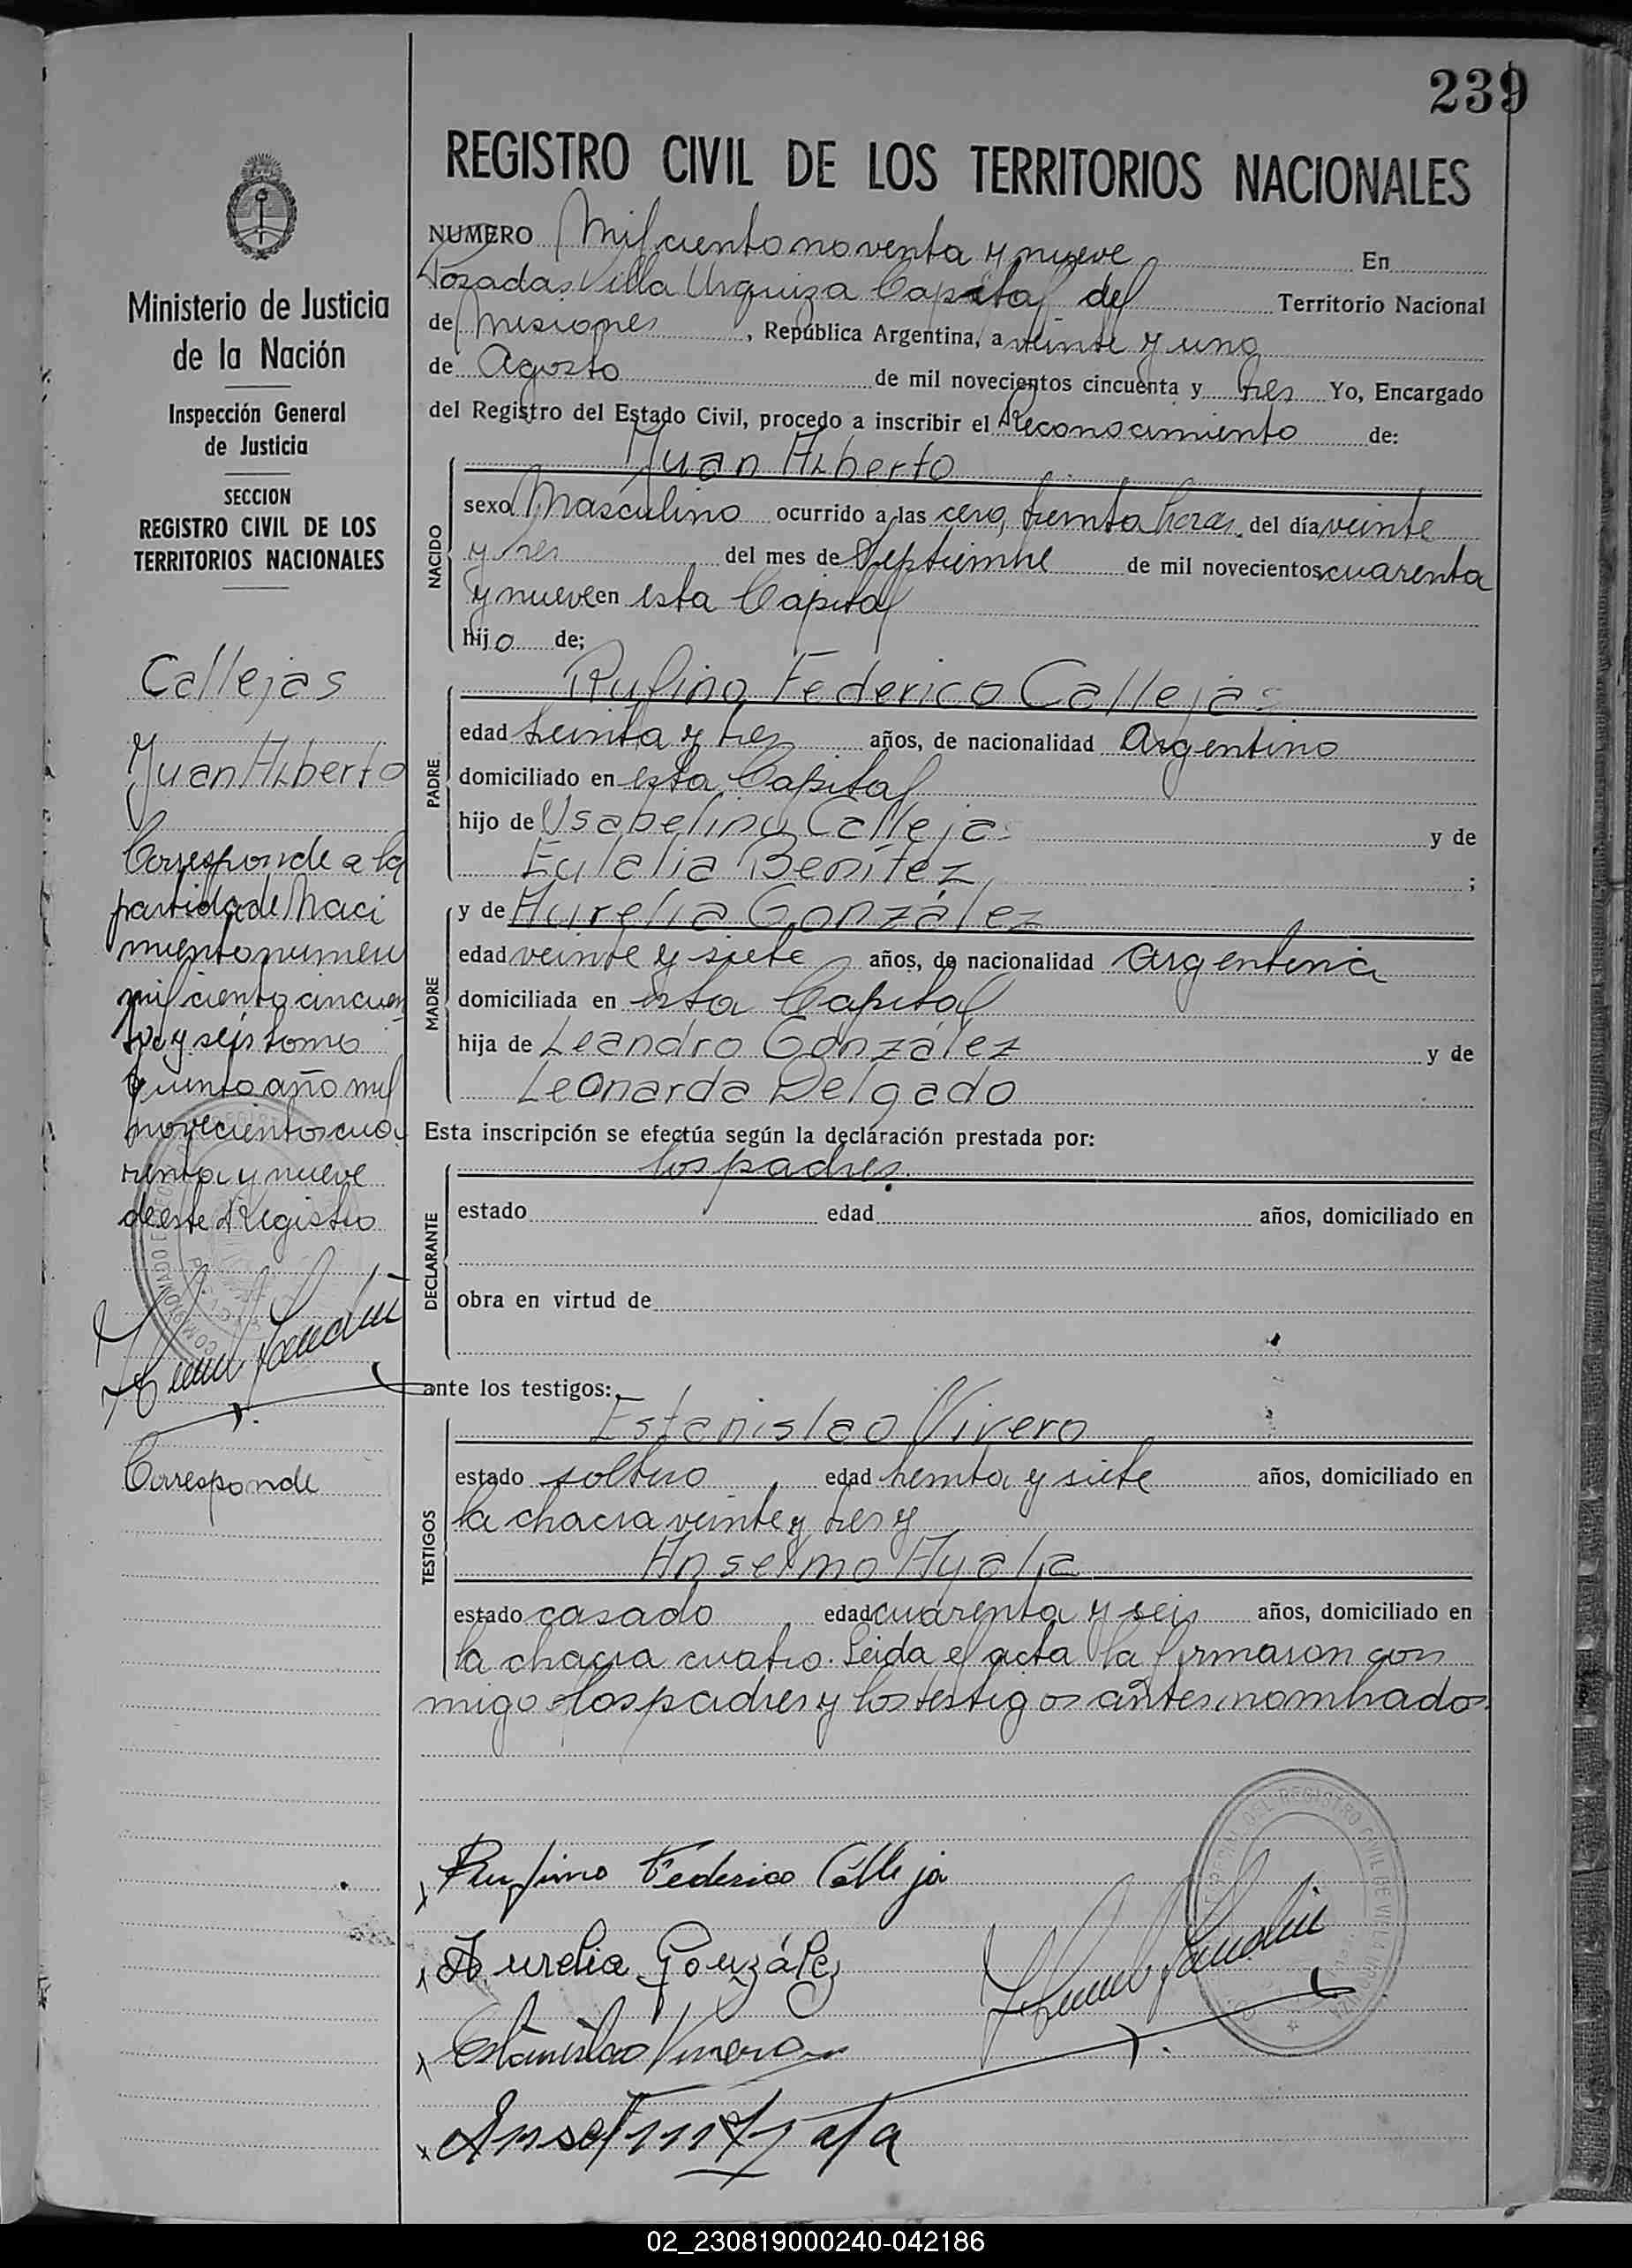 239
REGISTRO CIVIL DE LOS TERRITORIOS NACIONALES
NUMERO Mil ciento noventa y nueve En
Posadas Villa Urquiza Capital del Territorio Nacional
de Misiones, República Argentina, a veinte y uno
de Agosto de mil novecientos cincuenta y tres Yo, Encargado
del Registro del Estado Civil, procedo a inscribir el Reconocimiento de:
NACIDO
Juan Alberto
sexo Masculino ocurrido a las cero, treinta horas del día veinte
y tres del mes de Septiembre de mil novecientos cuarenta
y nueve en esta Capital
hijo de;
PADRE
Rufino Federico Callejas
edad treinta y tres años, de nacionalidad Argentino
domiciliado en esta Capital
hijo de Isabelino Callejas y de
Eulalia Benítez ;
MADRE
y de Aurelia González
edad veinte y siete años, de nacionalidad Argentina
domiciliada en esta Capital
hija de Leandro González y de
Leonarda Delgado
Esta inscripción se efectúa según la declaración prestada por:
DECLARANTE
los padres
estado edad años, domiciliado en
obra en virtud de
ante los testigos:
TESTIGOS
Estanislao Vivero
estado soltero edad treinta y siete años, domiciliado en
la chacra veinte y tres y
Anselmo Ayala
estado casado edad cuarenta y seis años, domiciliado en
la chacra cuatro. Leida el acta la firmaron con
migo los padres y los testigos antes nombrados.
Rufino Federico Calleja
Aurelia González
Estanislao Vivero
Anselmo Ayala
Ministerio de Justicia
de la Nación
Inspección General
de Justicia
SECCION
REGISTRO CIVIL DE LOS
TERRITORIOS NACIONALES
Callejas
Juan Alberto
Corresponde a la
partida de Naci
miento numero
mil ciento cincuen
ta y seis tomo
quinto año mil
novecientos cua
renta y nueve
de este Registro
Corresponde
02_230819000240-042186